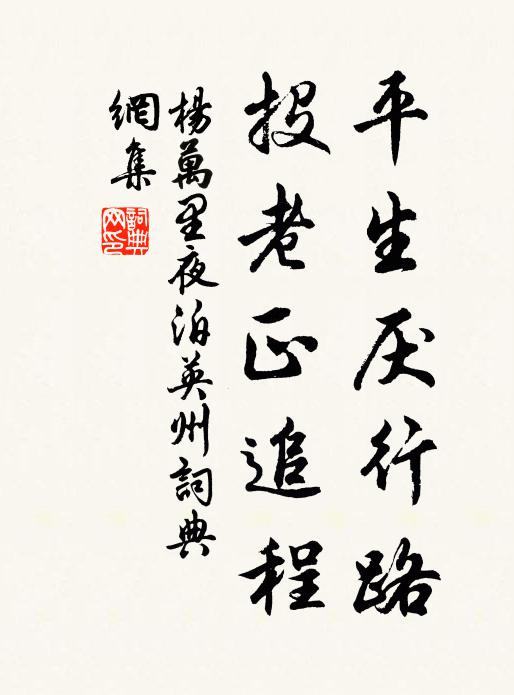 平生厌行路
投老正追程
楊萬里夜泊英州詞典
網集
詞典网印